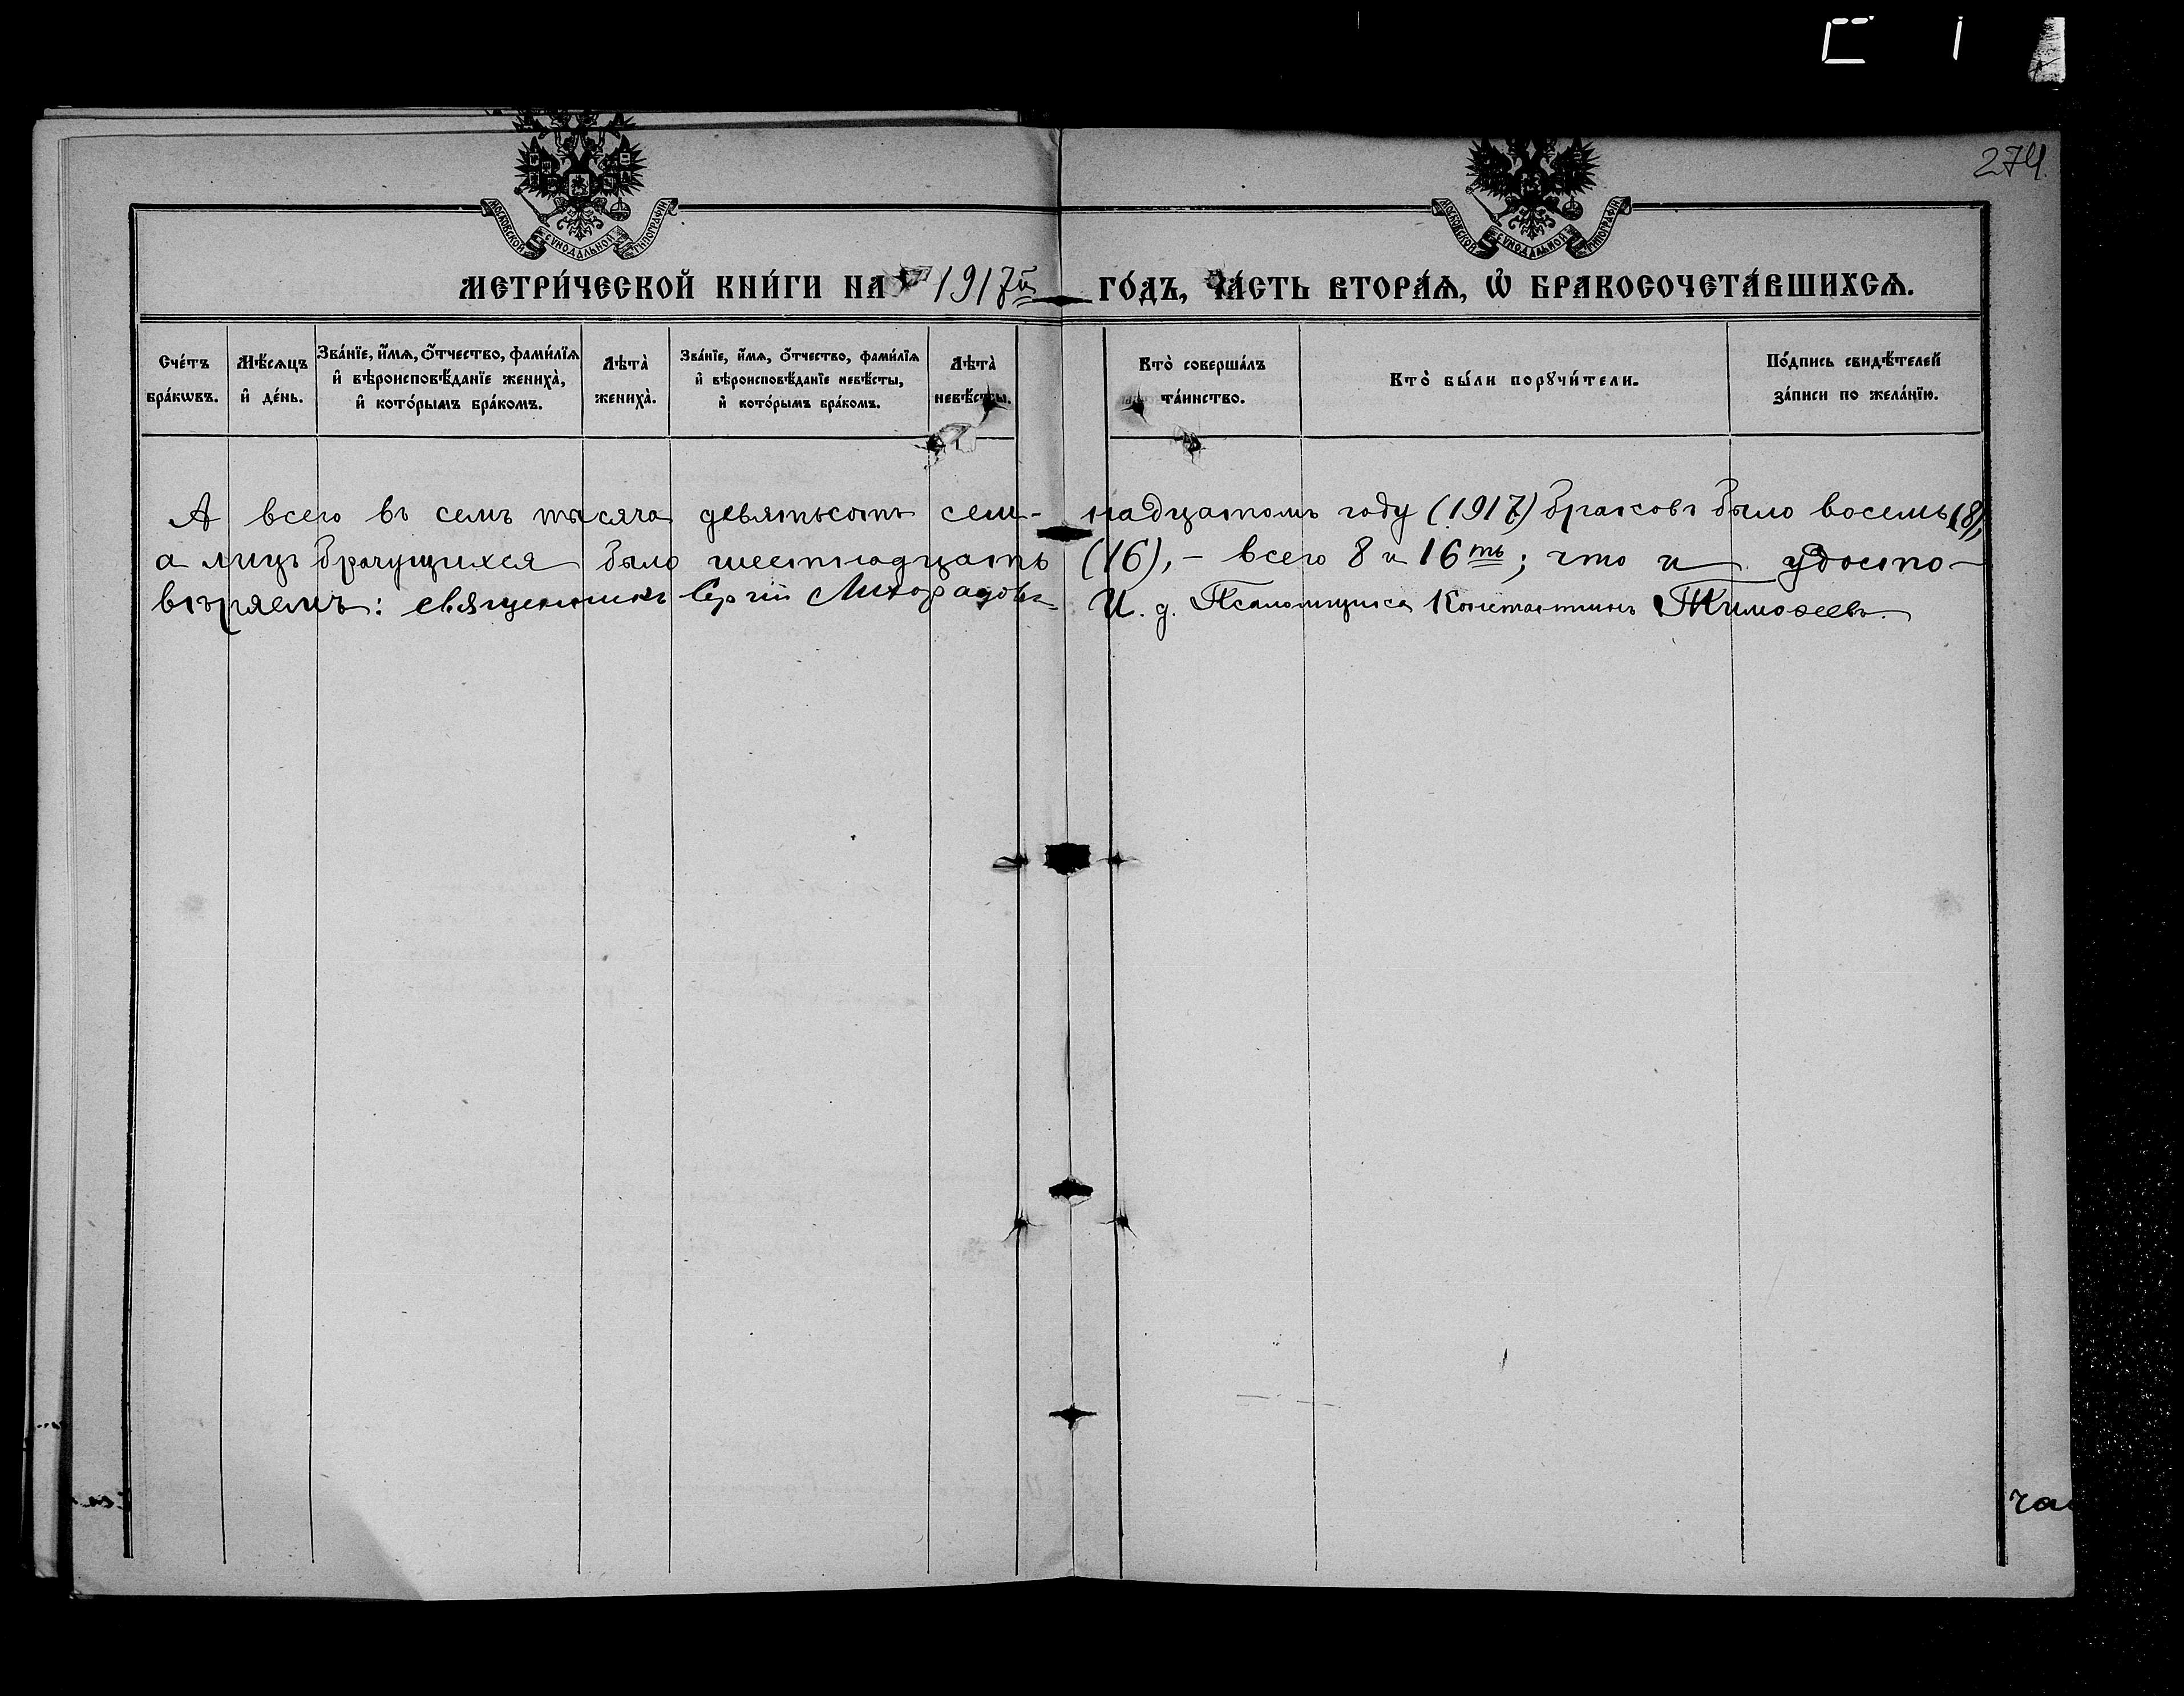 274.
МОСКОВСКОЙ СѴНОДАЛЬНОЙ ТИПОГРАФІИ
МОСКОВСКОЙ СѴНОДАЛЬНОЙ ТИПОГРАФІИ
МЕТРИ́ЧЕСКОЙ КНИ́ГИ НА 1917й ГО́ДЪ, ЧА́СТЬ ВТОРА́Ѧ, Ѽ БРАКОСОЧЕТА́ВШИХСѦ.
Сче́тъ
бра́кѡвъ.
Мѣ́сѧцъ
и҆ де́нь.
Зва́нїе, и҆́мѧ, ѻ҆́тчество, фами́лїѧ
и҆ вѣроисповѣ́данїе жениха̀,
и҆ кото́рымъ бра́комъ.
Лѣта̀
жениха̀.
Зва́нїе, и҆́мѧ, ѻ҆́тчество, фами́лїѧ
и҆ вѣроисповѣ́данїе невѣ́сты,
и҆ кото́рымъ бра́комъ.
Лѣта̀
невѣ́сты.
Кто̀ соверша́лъ
та́инство.
Кто̀ бы́ли порꙋчи́тели.
По́дпись свидѣ́телей
за́писи по жела́нїю.
А всего въ семъ тысяча девятьсотъ сем-
надцатомъ году (1917) браковъ было восемь (8),
а лицъ брачущихся было шестнадцать
(16), - всего 8 и 16ть; что и удосто-
вѣряемъ: священникъ Сергій
И. д. Псаломщика Константинъ Тимоѳеевъ.